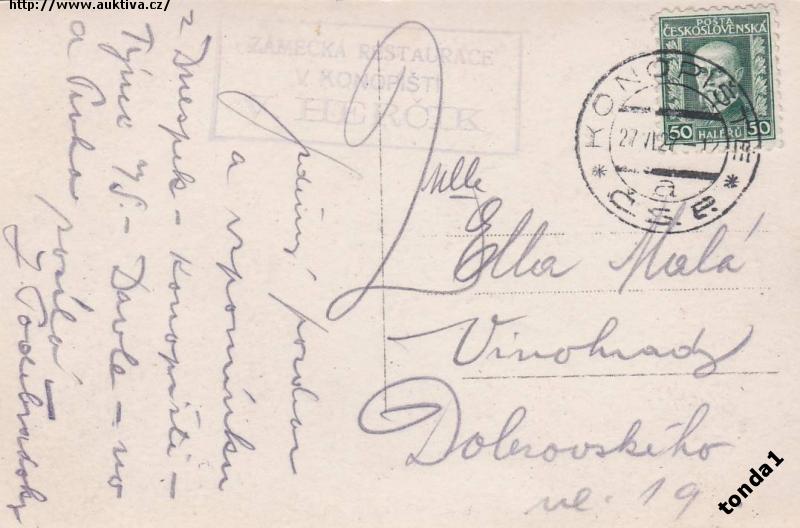 http://www.auktiva.cz/
ZÁMECKÁ RESTAURACE
V KONOPIŠTI
V HERČÍK
POŠTA
ČESKOSLOVENSKÁ
50 HALÉRŮ 50
KONOPIŠ
27 VI 27
a
Srdečný pozdrav
a vzpomínku
z Dnespek - Konopiště -
Týnec n/S. - Davle - no
a Praha posílá
Poděbradský
Mlle
Ella Malá
Vinohrady
Dobrovského
ul. 19
tonda1